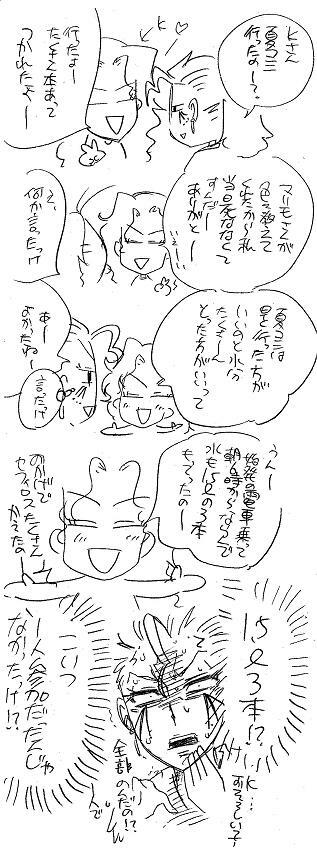 Kさん
夏コミ
行ったのー?
K
行たよー
たくさん本あって
つかれたよー
マリモさんが
色々教えて
くれたから私
当日死ななくて
すんだー
ありがとー
え、
何か言ったっけ
夏コミは
早く行った方が
いいのと水分
たくさーん
とった方がいいって
あー
よかったねー
言ったっけ
うんー
始発の電車乗って
朝6時からならんで
水も1.5ℓの3本
もってったのー
おかげで
セフィロスたくさん
かえたの
1.5ℓ3本!?
こいつ
一人参加だったんじゃ
なかったっけ!?
K…
恐ろしい子!
全部
のんだの!?